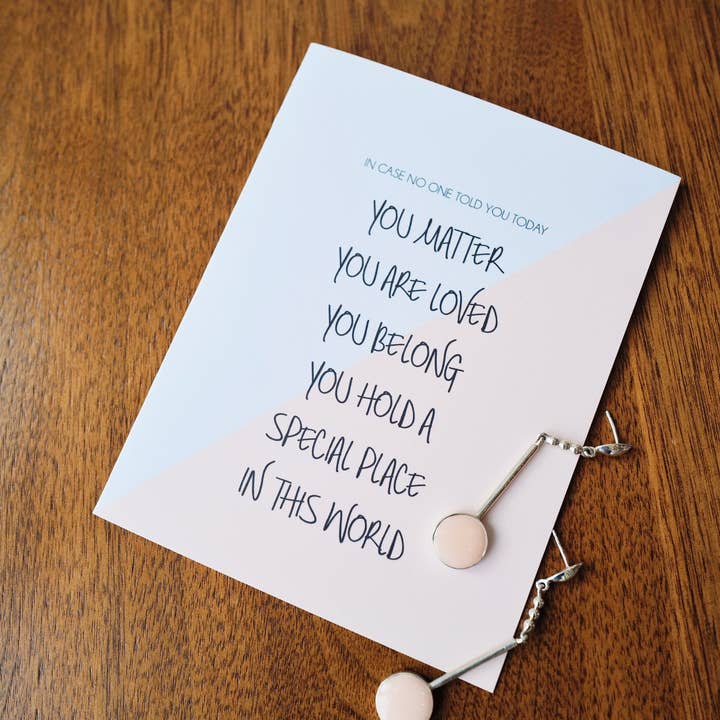 IN CASE NO ONE TOLD YOU TODAY
YOU MATTER
YOU ARE LOVED
YOU BELONG
YOU HOLD A
SPECIAL PLACE
IN THIS WORLD